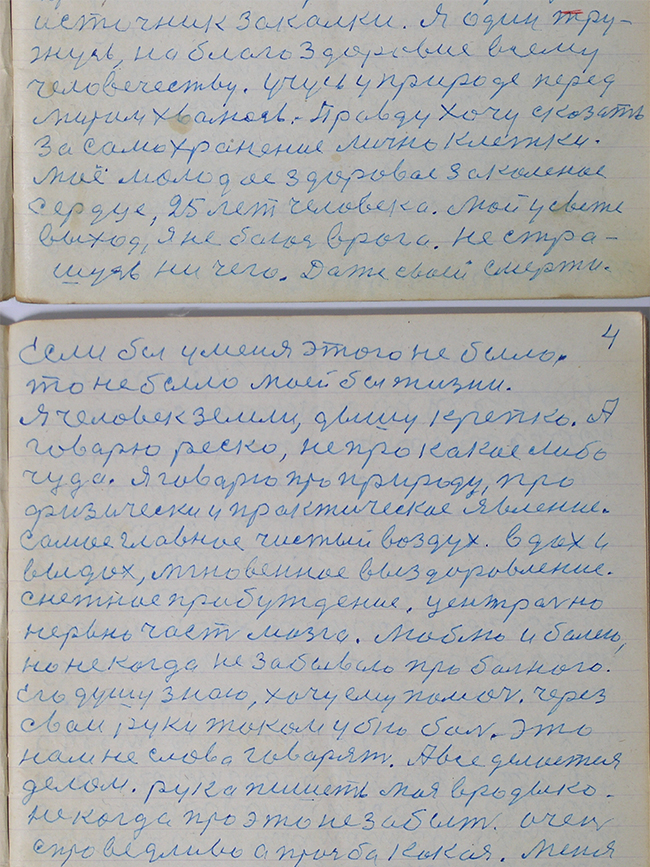 источник закалки. Я один тру-
жусь, на благо здоровие всему
человечеству. Учусь у природе перед
миром хвалюсь. Правду хочу сказать
За само хранение лично клетки.
Моё молодое здоровое закаленое
Сердце, 25 лет человека. Мой у свете
выход, я не боюся врага. не стра-
шусь ни чего. Даже своей смерти.
4
Если бы у меня этого не было,
то не было моей бы жизни.
Я человек земли, дышу крепко. А
говарю реско, не про какое либо
чуда. Я говарю про природу, про
физически и практическое явление.
Самое главное чистый воздух. вдох и
выдох, мгновенное выздоровление.
снежное прабуждение. централно
нервно част мозга. Люблю и болею,
но не когда не забываю про болного.
Его душу знаю, хочу ему помоч. через
свои руки током убью бол. это
нам не слова говарят. А все делается
делом. рука пишеть моя вродыко.
не когда про это не забыт. очен
справедливо а прозба какая. Меня